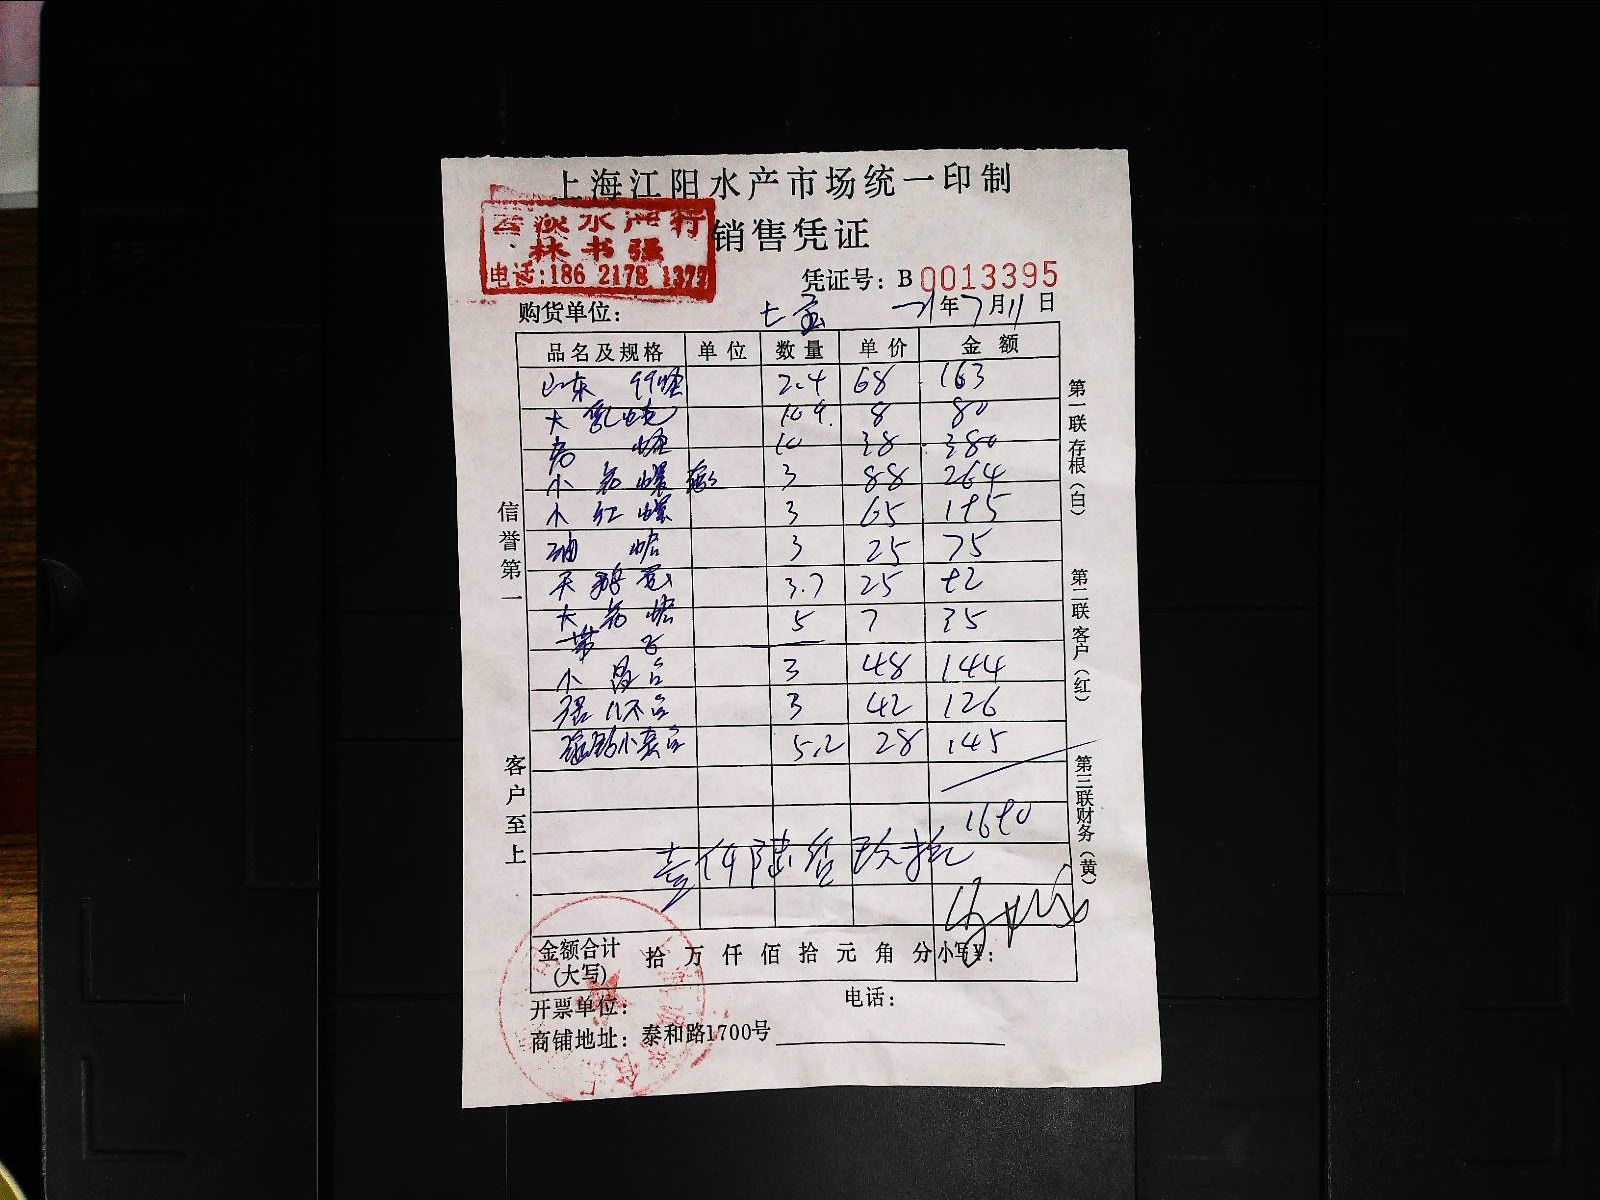 上海江阳水产市场统一印制
云淡水产行
林书强
电话:186 2178 1377
销售凭证
凭证号: B 0013395
购货单位: 七宝 21年7月11日
品名及规格 单位 数量 单价 金额
山东 2.4 68 163
大 8 80
10 38 380
小 螺 3 88 264
小红螺 3 65 195
油蛤 3 25 75
天鹅蛋 3.7 25 92
大 蛤 5 7 35
带子
小 3 48 144
3 42 126
小 5.2 28 145
1690
壹仟陆佰玖拾
金额合计
(大写)
拾 万 仟 佰 拾 元 角 分 小写¥:
开票单位: 电话:
商铺地址: 泰和路1700号
信誉第一
客户至上
第一联 存根(白)
第二联 客户(红)
第三联 财务(黄)